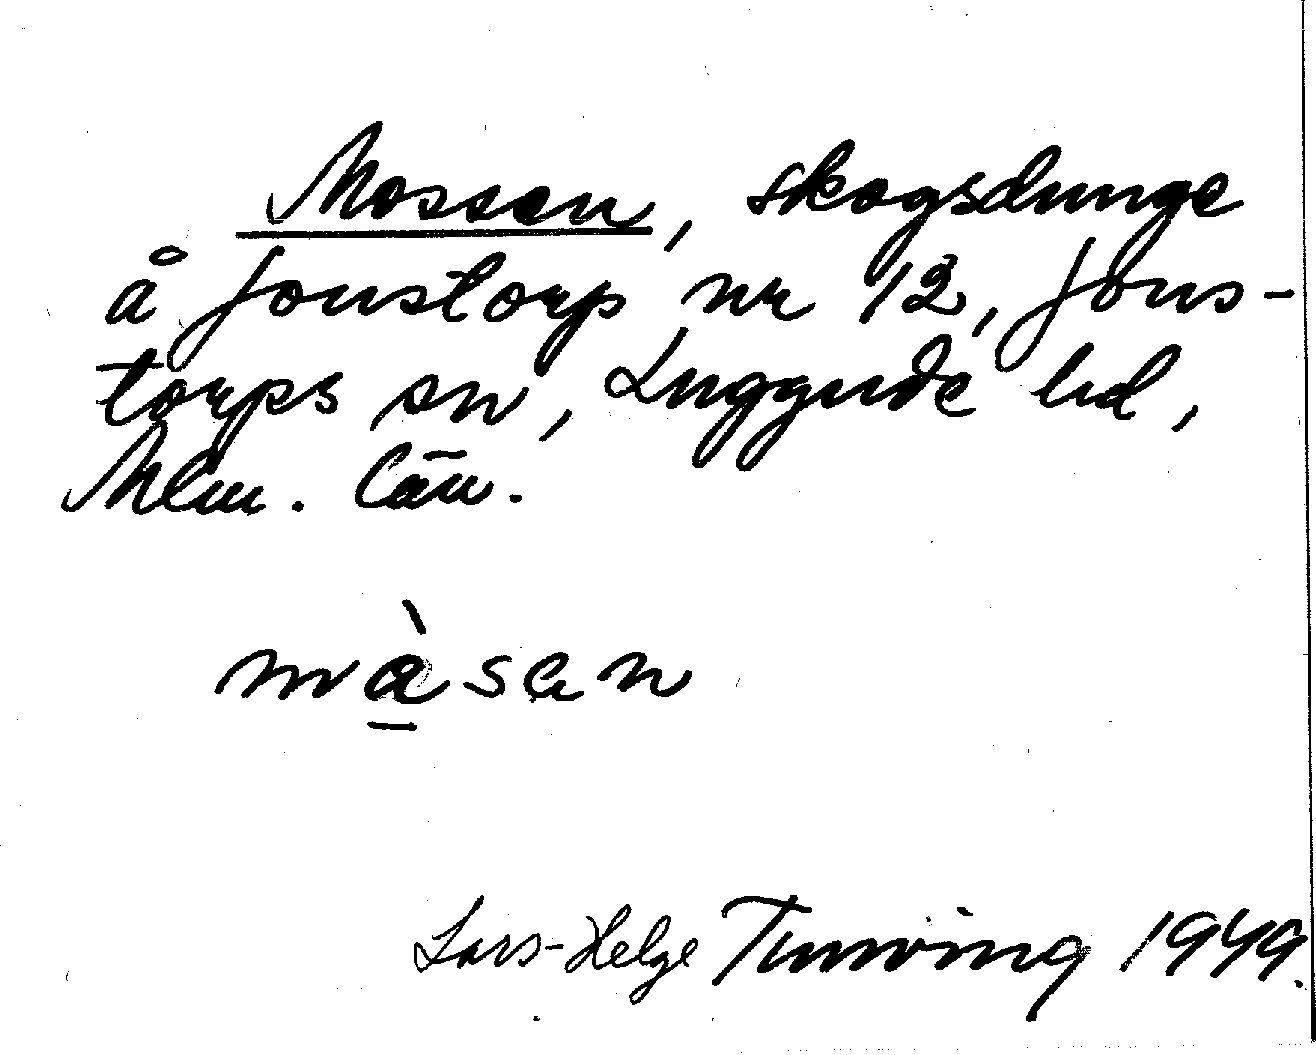 Mossen, skogsdunge
å Jonstorp nr 12, Jons-
torps sn, Luggude hd,
Mlm. län.
màsen
Lars-Helge Tunving 1949.